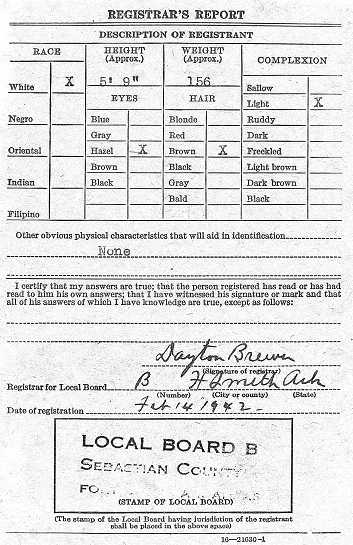 REGISTRAR'S REPORT
DESCRIPTION OF REGISTRANT
RACE HEIGHT (Approx.) WEIGHT (Approx.) COMPLEXION
White X 5' 9" 156 Sallow
EYES HAIR Light X
Negro Blue Blonde Ruddy
Gray Red Dark
Oriental Hazel X Brown X Freckled
Brown Black Light brown
Indian Black Gray Dark brown
Bald Black
Filipino
Other obvious physical characteristics that will aid in identification
None
I certify that my answers are true; that the person registered has read or has had
read to him his own answers; that I have witnessed his signature or mark and that
all of his answers of which I have knowledge are true, except as follows:
Dayton Brewer
(Signature of registrar)
Registrar for Local Board B Ft Smith Ark
(Number) (City or county) (State)
Date of registration Feb 14 1942
LOCAL BOARD B
SEBASTIAN COUNTY
FO
(STAMP OF LOCAL BOARD)
(The stamp of the Local Board having jurisdiction of the registrant
shall be placed in the above space)
16—21630-1